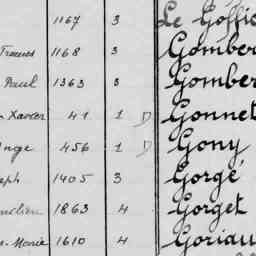 1167 3 Le Goffic
1168 3 Gomber
Paul 1363 3 Gomber
Xavier 41 1 Gonnet
Ange 456 1 Gony
eph 1405 3 Gorgé
milien 1863 4 Gorget
Marie 1610 4 Goriau